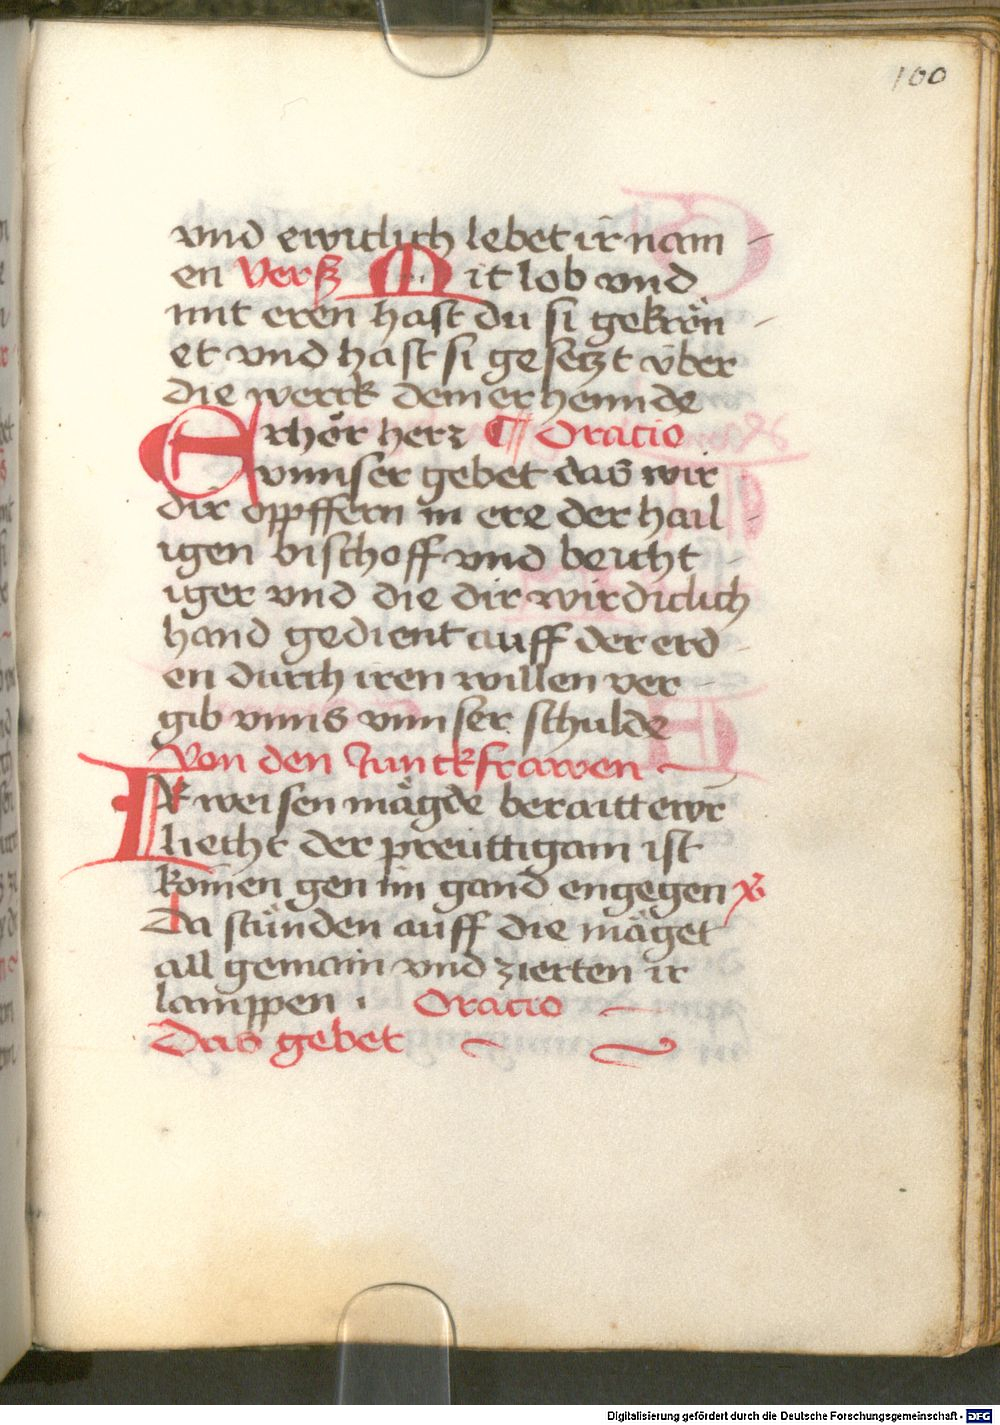 100
vnd ewitlich lebet ir nam -
en Verß Mit lob vnd
mit eren hast du si gekrön -
et vnd hast si gesetzt über
die werck deiner hennde
Erhör herz ¶ Oracio
vnnser gebet das wir
dir oppffern in ere der hail -
igen bischoff vnd beicht -
iger vnd die dir wirdiclich
hand gedient auff der erd -
en durch iren willen ver -
gib vnns vnnser schulde
Von den Junckfrawen
Ir weisen mägde beraitt ewr
liecht der preüttigam ist
komen gen im gand engegen
Da stünden auff die mäget
all gemain vnd zierten ir
lamppen . Oracio
Das gebet
Digitalisierung gefördert durch die Deutsche Forschungsgemeinschaft - DFG